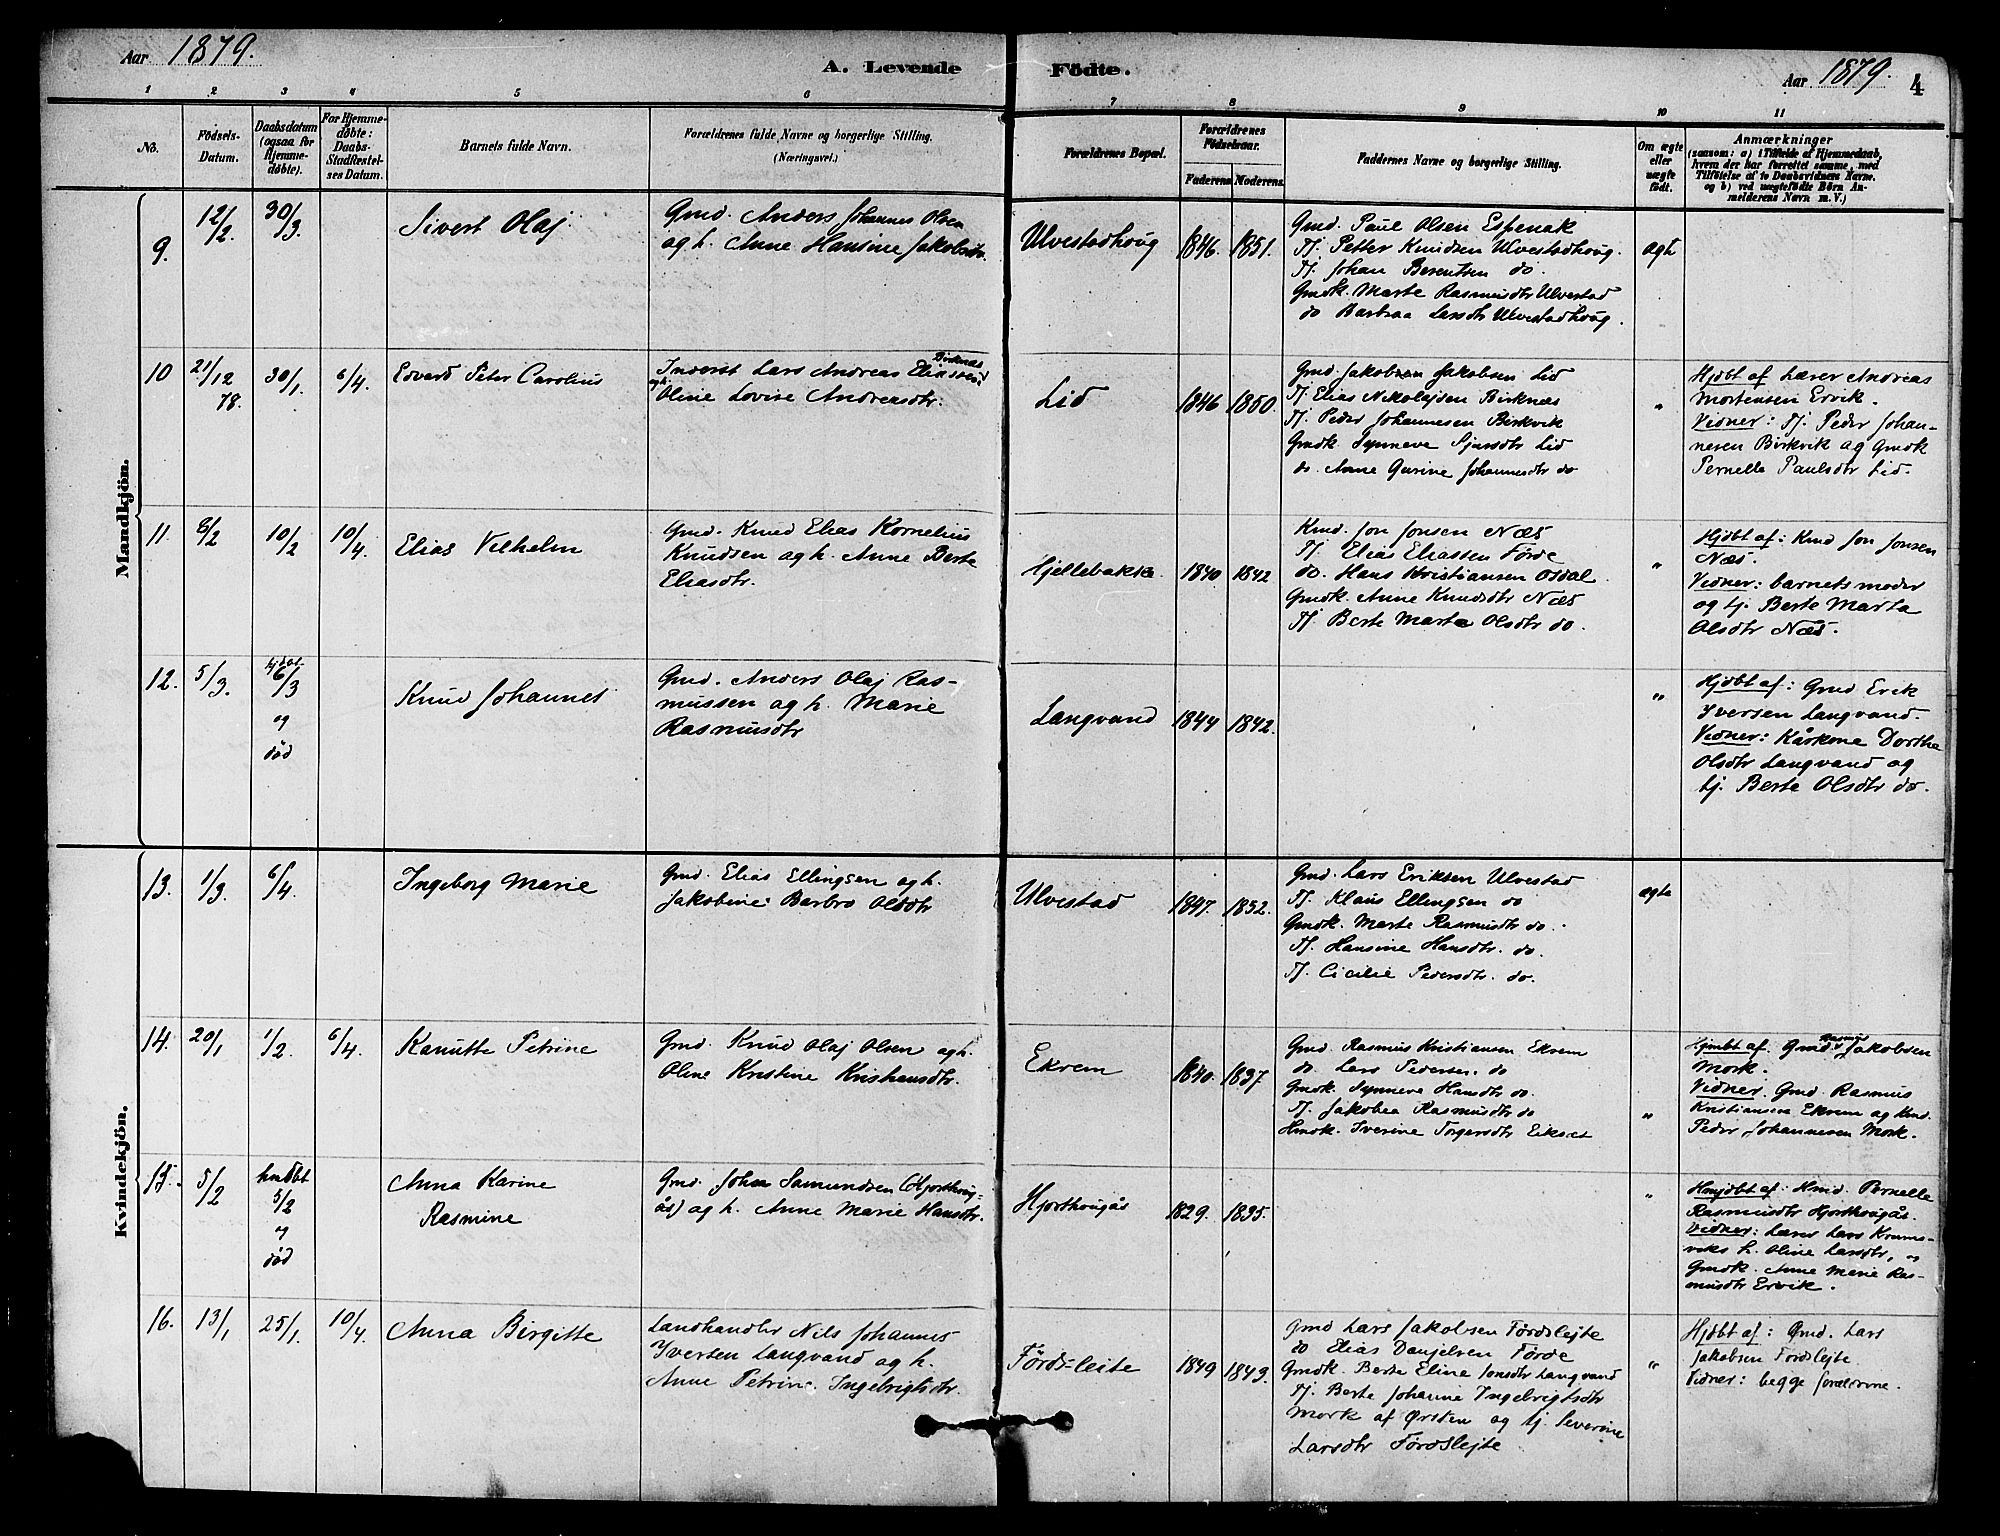 Aar 1879.
A. Levende Födte.
Aar 1879. 4
1 2 3 4 5 6 7 8 9 10 11
No.
Födsels-
Datum.
Daabsdatum
(ogsaa for
Hjemme-
døbte).
For Hjemme-
døbte:
Daabs-
Stadfæstel-
ses Datum.
Barnets fulde Navn.
Forældrenes fulde Navne og borgerlige Stilling.
(Næringsvei.)
Forældrenes Bopæl.
Forældrenes
Födselsaar.
Faderens. Moderens.
Faddernes Navne og borgerlige Stilling.
Om ægte
eller
uægte
født.
Anmærkninger
(saasom: a) i Tilfælde af Hjemmedaab,
hvem der har forrettet samme, med
Tilføielse af to Daabsvidners Navne.
og b) ved uægtefødte Börn An-
melderens Navn m. V.)
Mandkjön.
9.
12/2.
30/3.
Sivert Olaj
Gmd. Anders Johannes Olsen
og h. Anne Hansine Jakobsdtr.
Ulvestadhoug
1846. 1851.
Gmd. Paul Olsen Espenak
Tj. Petter Knudsen Ulvestadhoug.
Tj. Johan Berentsen do.
Gmdk. Marte Rasmusdtr Ulvestad
do Barbraa Larsdtr Ulvestadhoug.
ægte
10
21/12
78.
30/1.
6/4.
Edvard Peter Carolius
Inderst Lars Andreas Eliassen Birknæs
og h. Oline Lovise Andreasdtr.
Lid
1846 1850.
Gmd Jakobsen Jakobsen Lid
Tj. Elias Nikolajsen Birknæs
Tj. Peder Johannesen Birkvik
Gmdk. Synneve Sjursdtr Lid
do. Anne Gurine Johannesdtr do
"
Hjdbt af Lærer Andreas
Mortensen Ervik.
Vidner: Tj. Peder Johan-
nesen Birkvik og Gmdk
Pernelle Paulsdtr Lid.
11.
8/2
10/2
10/4.
Elias Vilhelm
Gmd. Knud Elias Kornelius
Knudsen og h. Anne Berte
Eliasdtr.
Hjellebakke.
1840 1842
Kmd. Jon Jonsen Næs
Tj. Elias Eliassen Førde
do. Hans Kristiansen Osdal.
Gmdk. Anne Knudsdtr Næs
Tj. Berte Marte Olsdtr do.
"
Hjdbt af: Kmd Jon Jonsen
Næs.
Vidner: barnets moder
og tj. Berte Marta
Olsdtr Næs.
12.
5/3.
6/3
og
död
Knud Johannes
Gmd. Anders Olaj Ras-
mussen og h. Marie
Rasmusdtr
Langvand
1844 1842.
"
Hjdbt af: Gmd Erik
Iversen Langvand.
Vidner: Kårkone Dorthe
Olsdtr Langvand og
tj. Berte Olsdtr do.
Kvindekjön.
13.
1/3.
6/4.
Ingeborg Marie
Gmd. Elias Ellingsen og h.
Jakobine Barbro Olsdtr
Ulvestad
1847. 1852.
Gmd. Lars Eriksen Ulvestad
Tj. Klaus Ellingsen do
Gmdk. Marte Rasmusdtr do.
Tj. Hansine Hansdtr. do.
Tj. Cicilie Pedersdtr. do.
ægte
14.
20/1
1/2.
6/4.
Kanutte Petrine
Gmd. Knud Olaj Olsen og h.
Oline Kristine Kristiansdtr.
Ekrem
1840. 1837.
Gmd. Rasmus Kristiansen Ekrem
do. Lars Pedersen. do
Gmdk. Synneve Hansdtr do.
Tj. Jakobea Rasmusdtr do
Hmdk. Iverine Torgersdtr Eikset
"
Hjmbt af. Gmd Rasmus Jakobsen
Mork.
Vidner. Gmd. Rasmus
Kristiansen Ekrem og Kmd.
Peder Johannesen Mork.
15.
5/2
hmdbt
5/2
og
död
Anna Karine
Rasmine
Gmd. John Samundsen (Hjorthoug-
ås) og h. Anne Marie Hansdtr.
Hjorthougås
1829. 1835.
"
Hmjdbt af: Hmd. Pernelle
Rasmusdtr Hjorthougås.
Vidner: Lærer Lars Krums-
viks h. Oline Larsdtr, og
Gmdk. Anne Marie Ras-
musdtr Ervik.
16.
13/1.
25/1.
10/4.
Anna Birgitte
Landhandler Nils Johannes
Iversen Langvand og h.
Anne Petrine Ingebrigtsdtr.
Førds-leite
1849 1849.
Gmd Lars Jakobsen Førdslejte
do Elias Danjelsen Førde
Gmdk. Berte Eline Jonsdtr Langvand
Tj. Berte Johanne Ingebrigtsdtr
Mork af Ørsten og tj. Severine
Larsdtr Førdslejte
"
Hjdbt af: Gmd. Lars
Jakobsen Førdslejte
Vidner: begge forældrene.